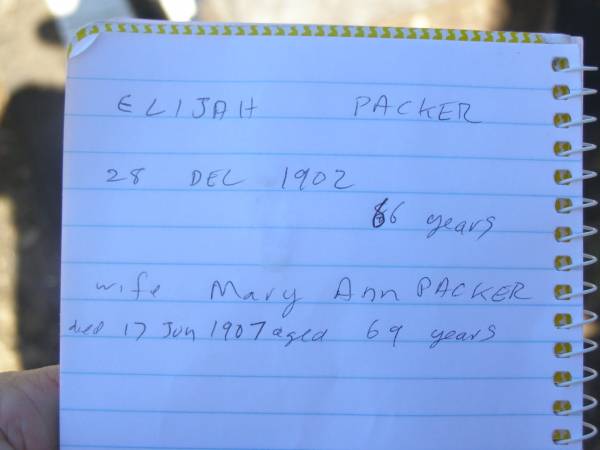 ELIJAH PACKER
28 DEC 1902
66 years
wife Mary Ann PACKER
died 17 Jun 1907 aged 69 years